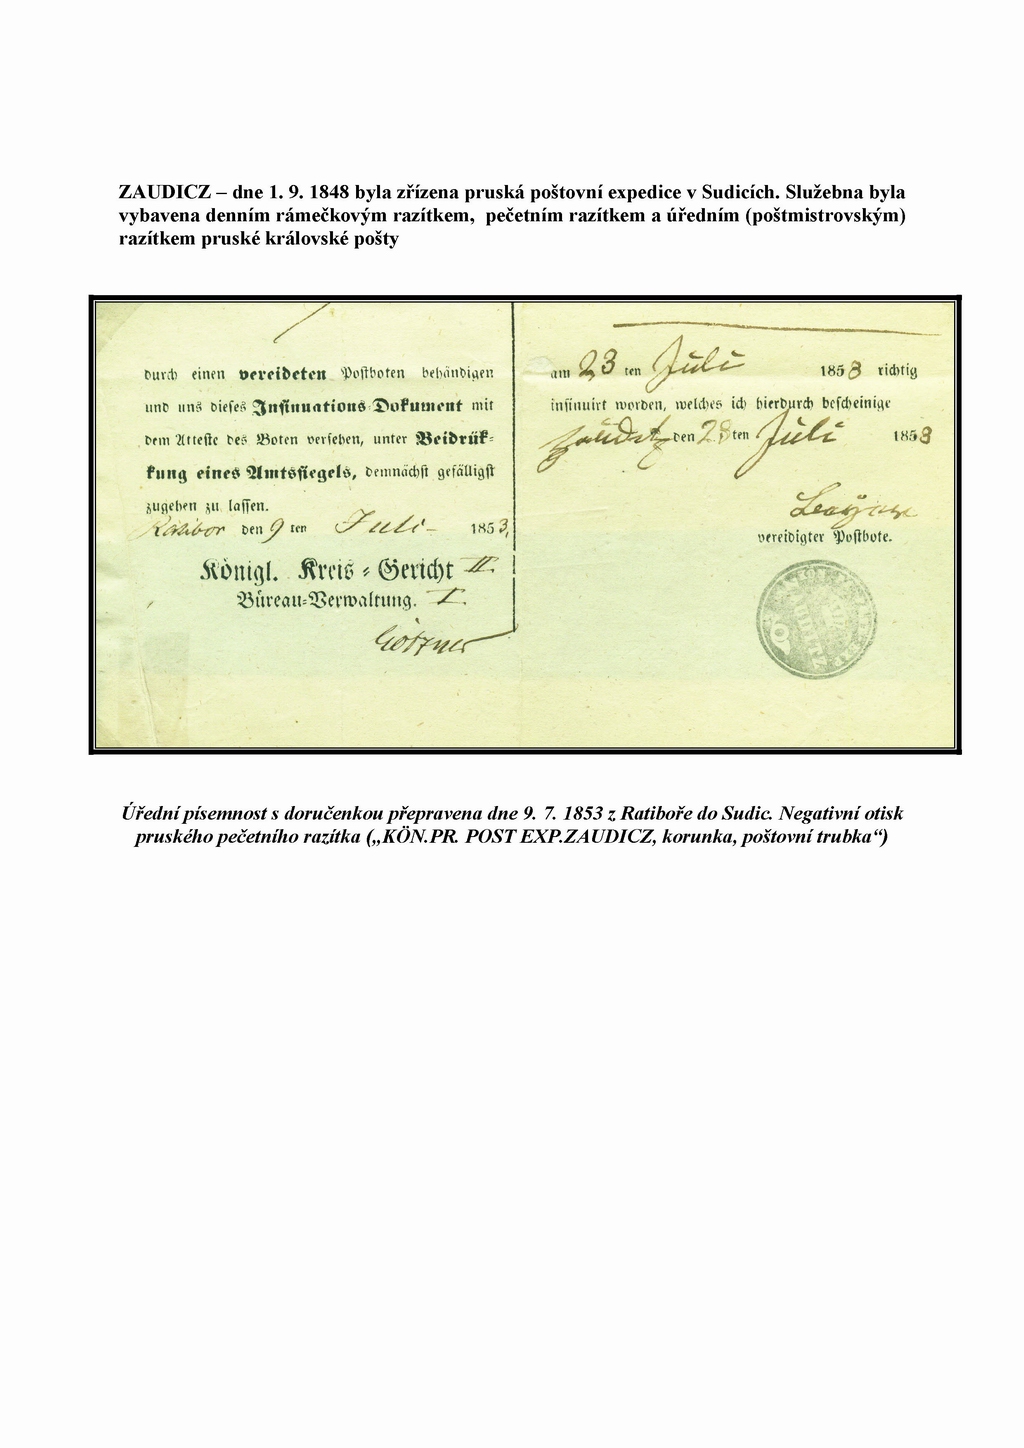 ZAUDICZ – dne 1. 9. 1848 byla zřízena pruská poštovní expedice v Sudicích. Služebna byla
vybavena denním rámečkovým razítkem, pečetním razítkem a úředním (poštmistrovským)
razítkem pruské královské pošty
durch einen vereideten Postboten behändigen
und uns dieses Insinuations-Dokument mit
dem Atteste des Boten versehen, unter Beidrük-
kung eines Amtssiegels, demnächst gefälligst
zugehen zu lassen.
Ratibor den 9 ten Juli 1853,
Königl. Kreis-Gericht II.
Büreau-Verwaltung. I.
am 23 ten Juli 1853 richtig
insinuirt worden, welches ich hierdurch bescheinige
Zauditz den 23 ten Juli 1853
vereidigter Postbote.
Úřední písemnost s doručenkou přepravena dne 9. 7. 1853 z Ratiboře do Sudic. Negativní otisk
pruského pečetního razítka („KÖN.PR. POST EXP.ZAUDICZ, korunka, poštovní trubka“)